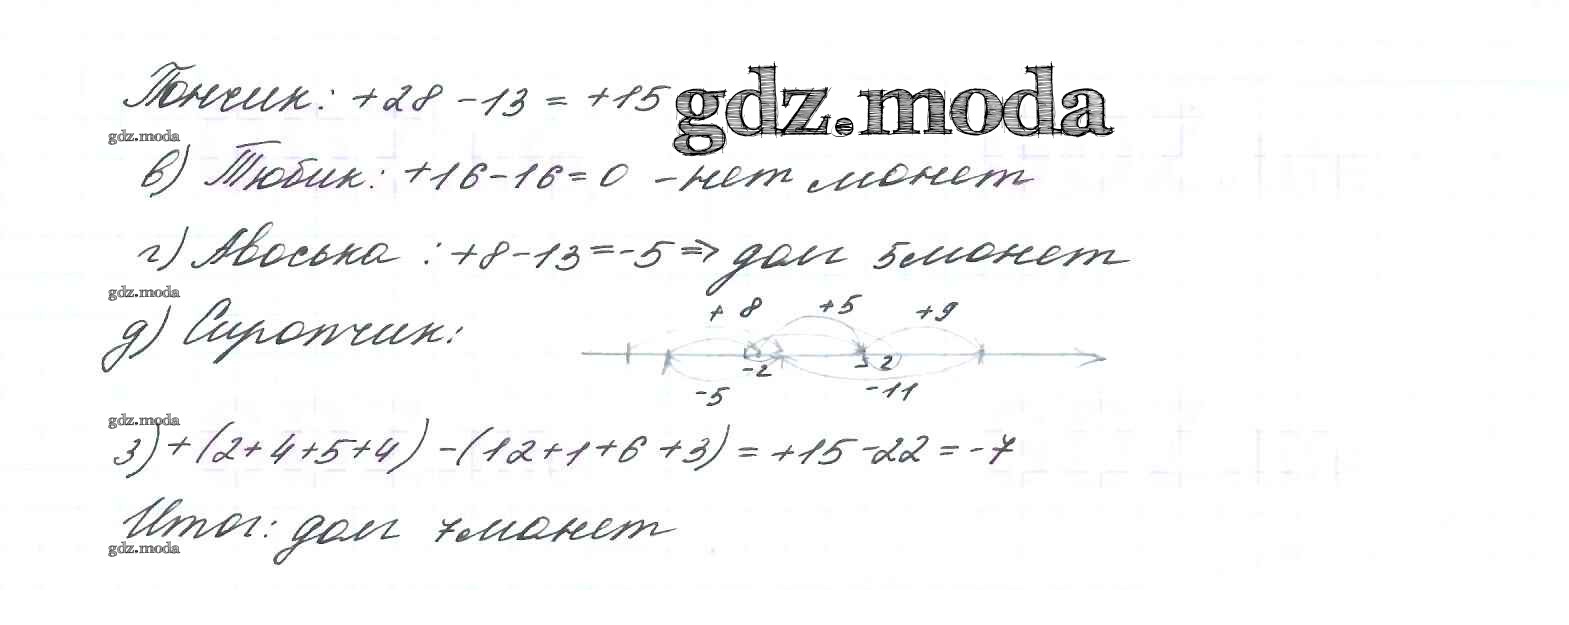 Пончик: +28 -13 = +15
gdz.moda
gdz.moda
в) Тюбик: +16-16=0 - нет монет
г) Авоська: +8-13=-5 => долг 5 монет
gdz.moda
д) Сиропчик:
+8 +5 +9
-2 -2
-5 -11
gdz.moda
3) +(2+4+5+4) -(12+1+6+3) = +15-22 = -7
Итог: долг 7 монет
gdz.moda